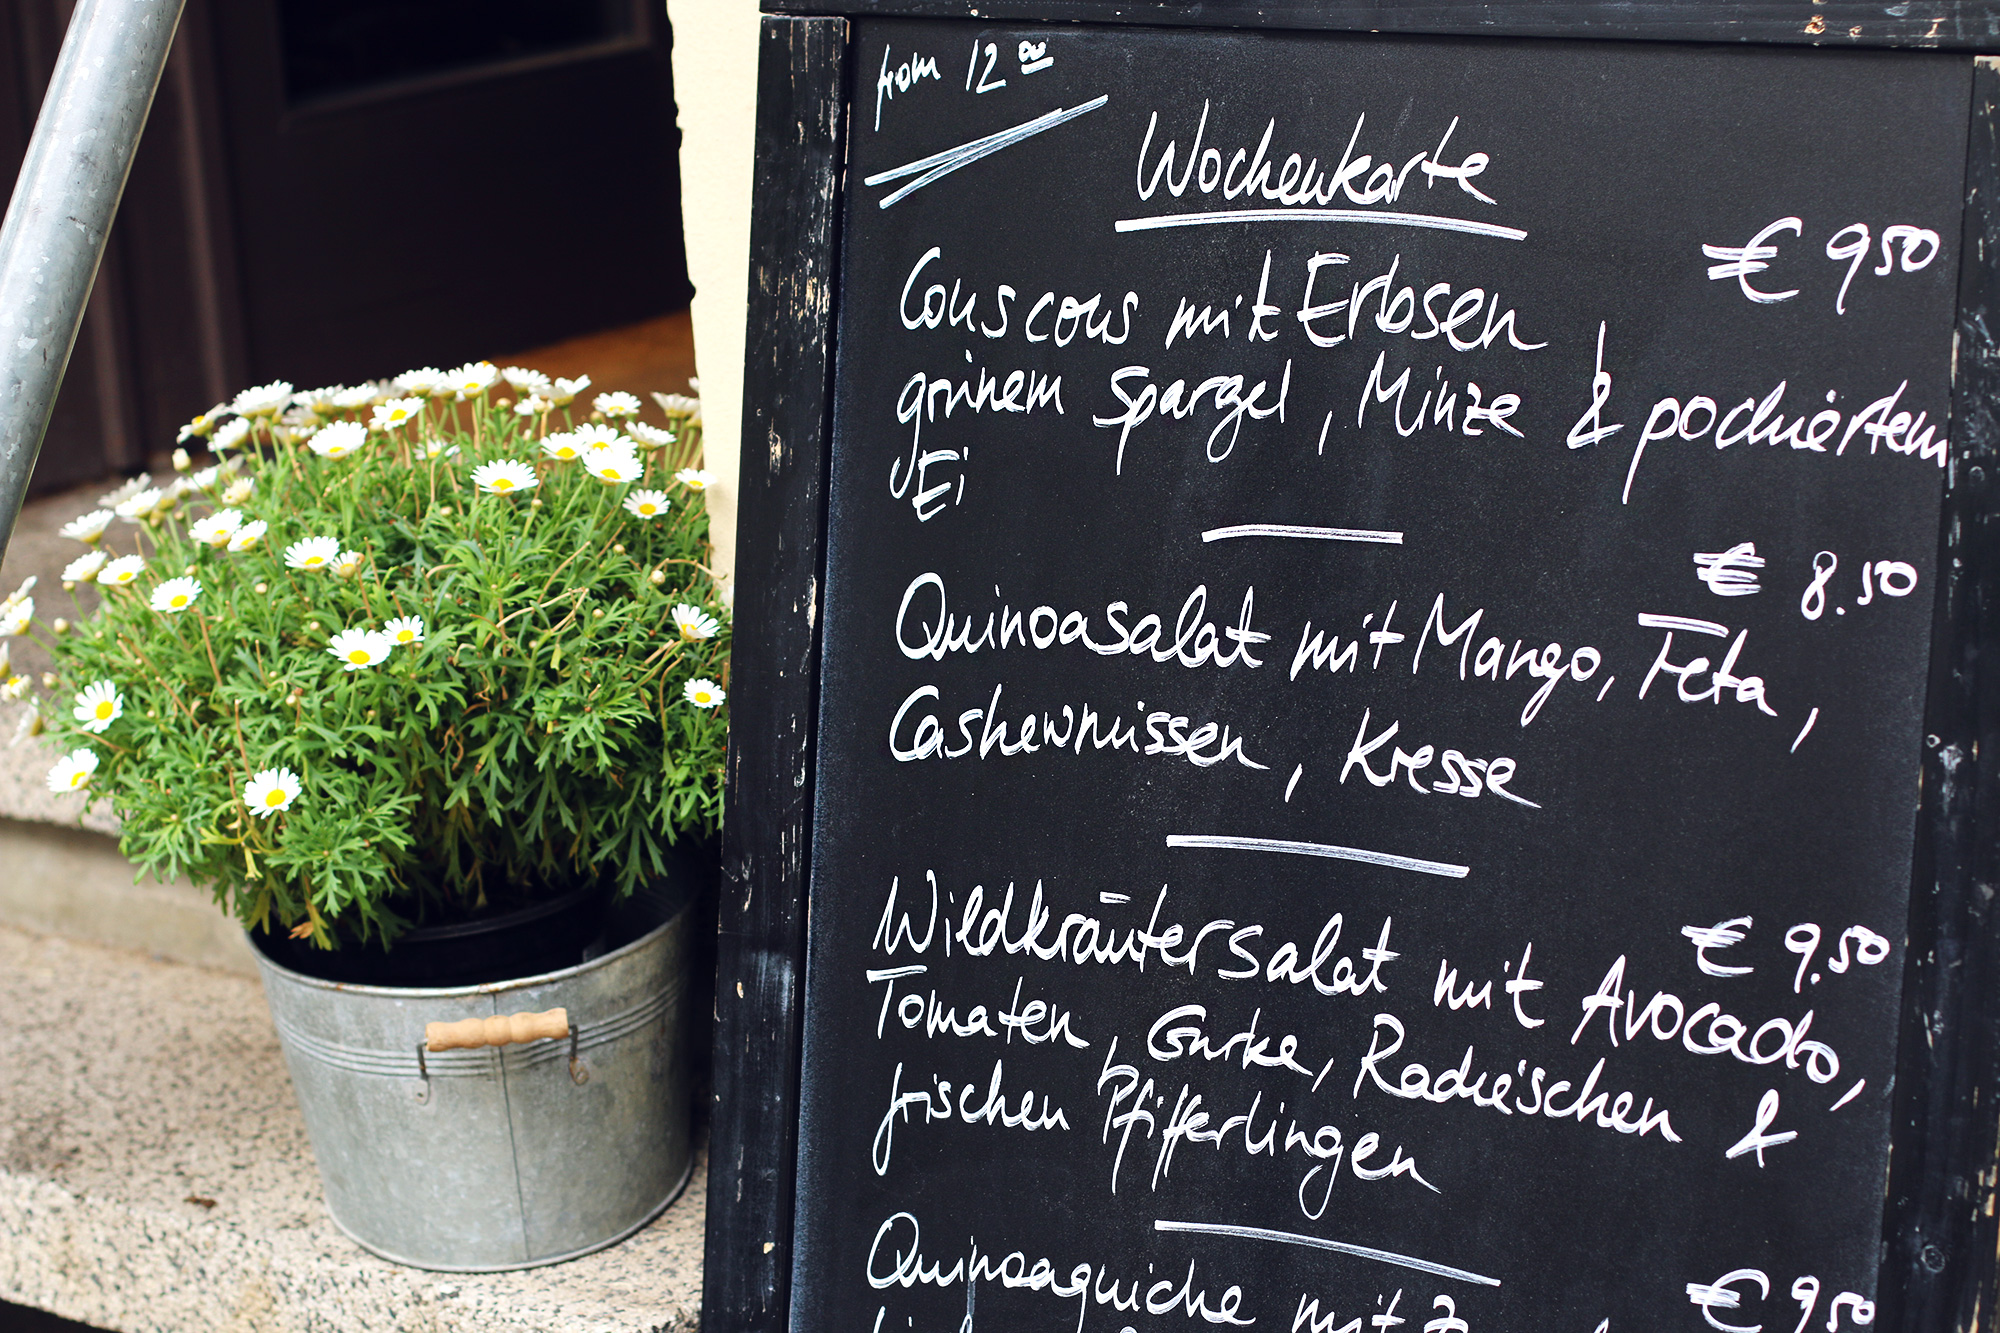 from 12 00
Wochenkarte
€ 9 50
Couscous mit Erbsen
grünem Spargel, Minze & pochiertem
Ei
€ 8.50
Quinoasalat mit Mango, Feta,
Cashewnüssen, Kresse
€ 9.50
Wildkräutersalat mit Avocado,
Tomaten, Gurke, Radieschen &
frischen Pfifferlingen
€ 9 50
Quinoaquiche mit